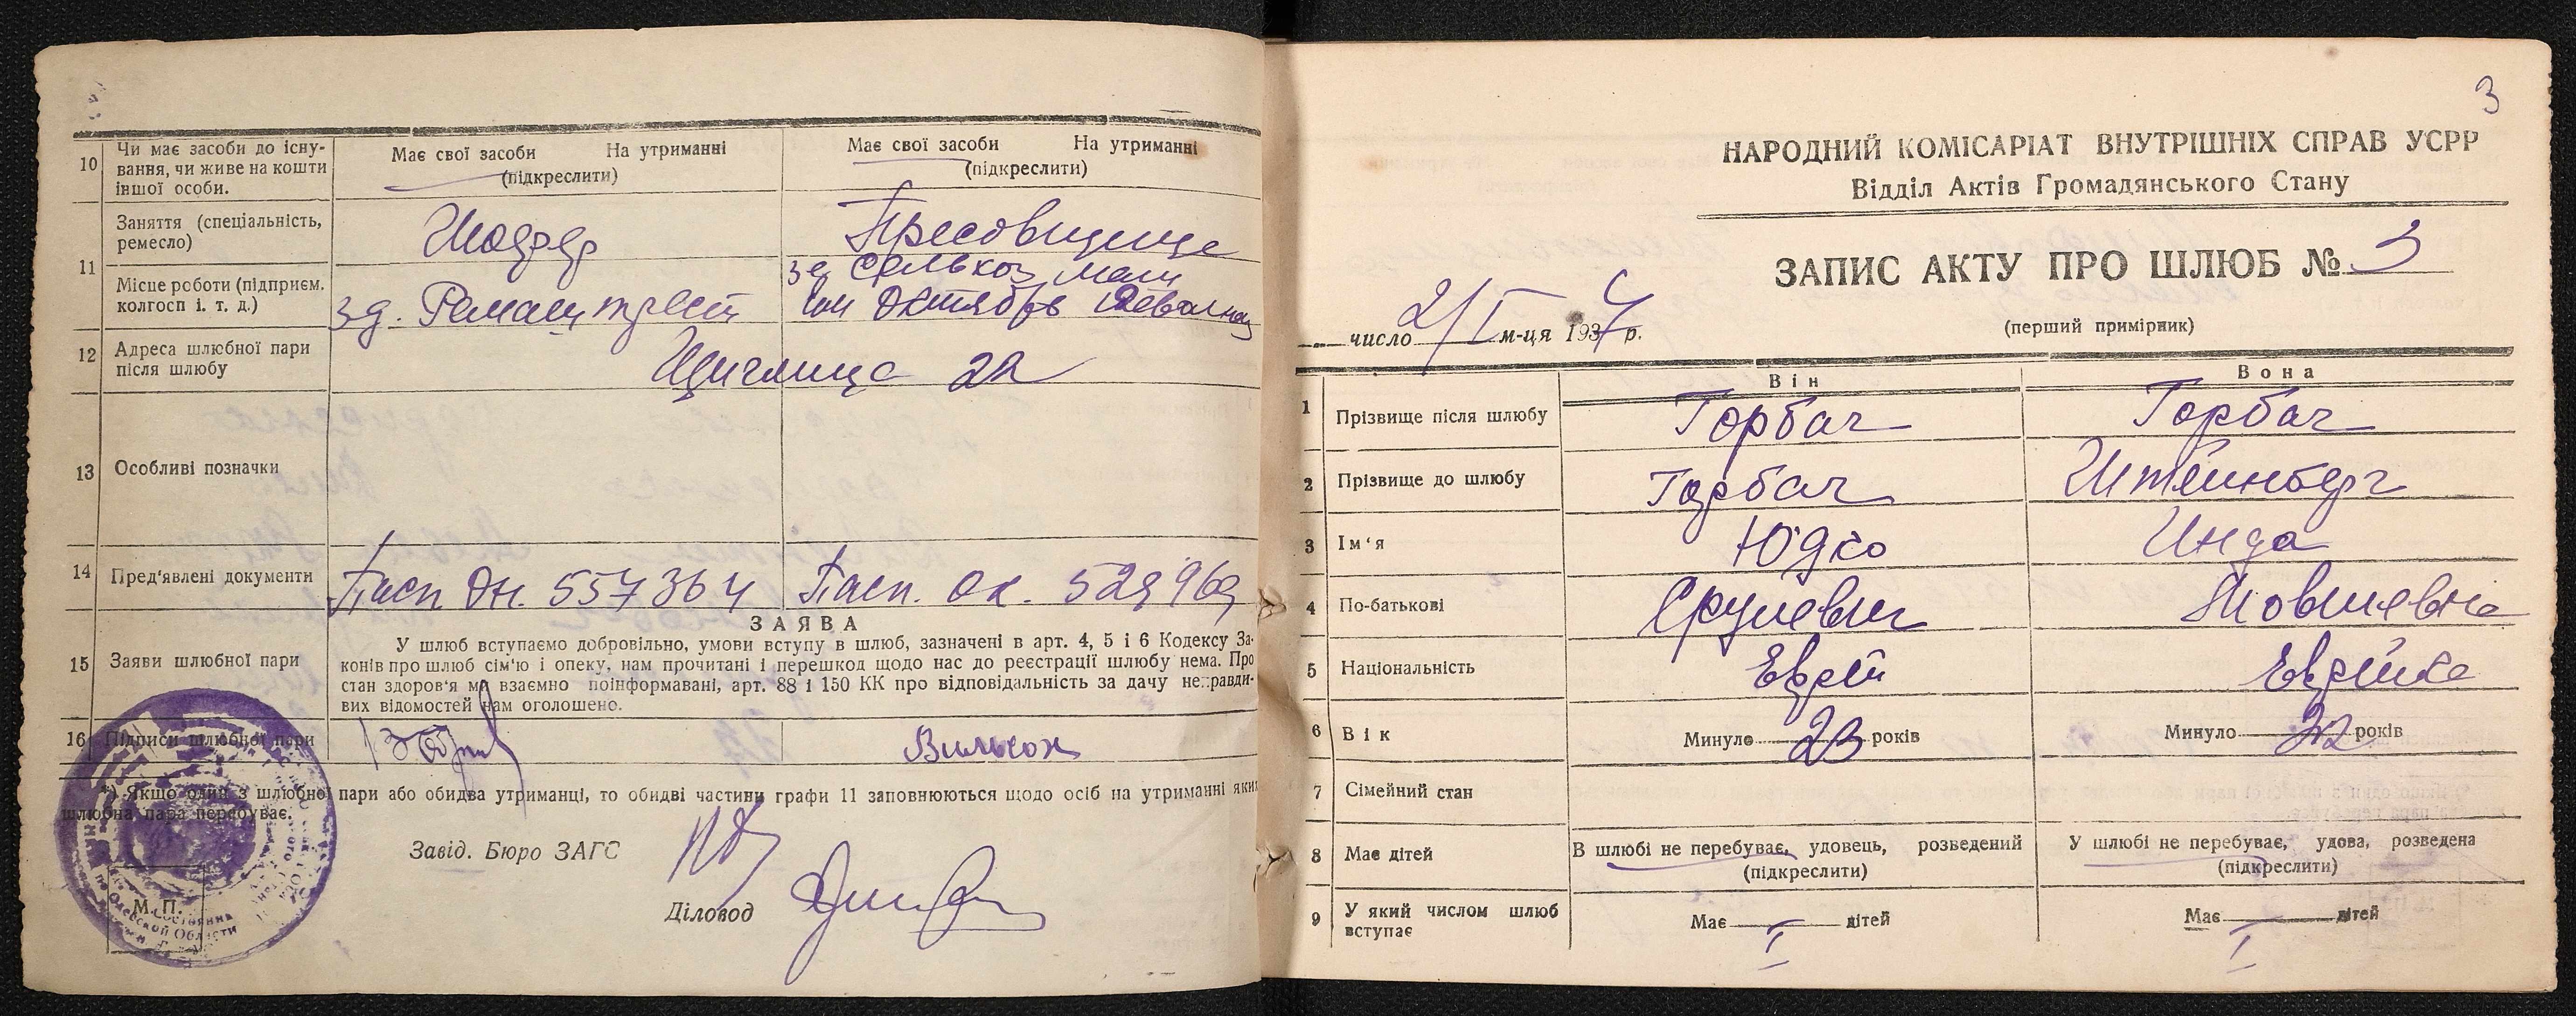 10 Чи має засоби до існу-
вання, чи живе на кошти
іншої особи.
Має свої засоби На утриманні
(підкреслити)
Має свої засоби На утриманні
(підкреслити)
11 Заняття (спеціальність,
ремесло)
Шофер
Пресовщица
Місце роботи (підприєм.
колгосп і. т. д.)
зд.
Октябрь
12 Адреса шлюбної пари
після шлюбу
22
13 Особливі позначки
14 Пред'явлені документи
Пасп. Он. 557364
Пасп. Ок. 529969
15 Заяви шлюбної пари
ЗАЯВА
У шлюб вступаємо добровільно, умови вступу в шлюб, зазначені в арт. 4, 5 і 6 Кодексу За-
конів про шлюб сім'ю і опеку, нам прочитані і перешкод щодо нас до реєстрації шлюбу нема. Про
стан здоров'я ми взаємно поінформавані, арт. 88 і 150 КК про відповідальність за дачу неправди-
вих відомостей нам оголошено.
16 Підписи шлюбної пари
*) Якщо один з шлюбної пари або обидва утриманці, то обидві частини графи 11 заповнюються щодо осіб на утриманні яких
шлюбна пара перебуває.
Завід. Бюро ЗАГС
Діловод
М. П.
3
НАРОДНИЙ КОМІСАРІАТ ВНУТРІШНІХ СПРАВ УСРР
Відділ Актів Громадянського Стану
ЗАПИС АКТУ ПРО ШЛЮБ № 3
(перший примірник)
число 2/I м-ця 1937 р.
Він
Вона
1 Прізвище після шлюбу
Горбач
Горбач
2 Прізвище до шлюбу
Горбач
Штейнберг
3 Ім'я
Юдко
Инда
4 По-батькові
Срулевич
Мовшевна
5 Національність
Еврей
Еврейка
6 Вік
Минуло 23 років
Минуло 22 років
7 Сімейний стан
8 Має дітей
В шлюбі не перебуває, удовець, розведений
(підкреслити)
У шлюбі не перебуває, удова, розведена
(підкреслити)
9 У який числом шлюб
вступає
Має дітей
I
Має дітей
I